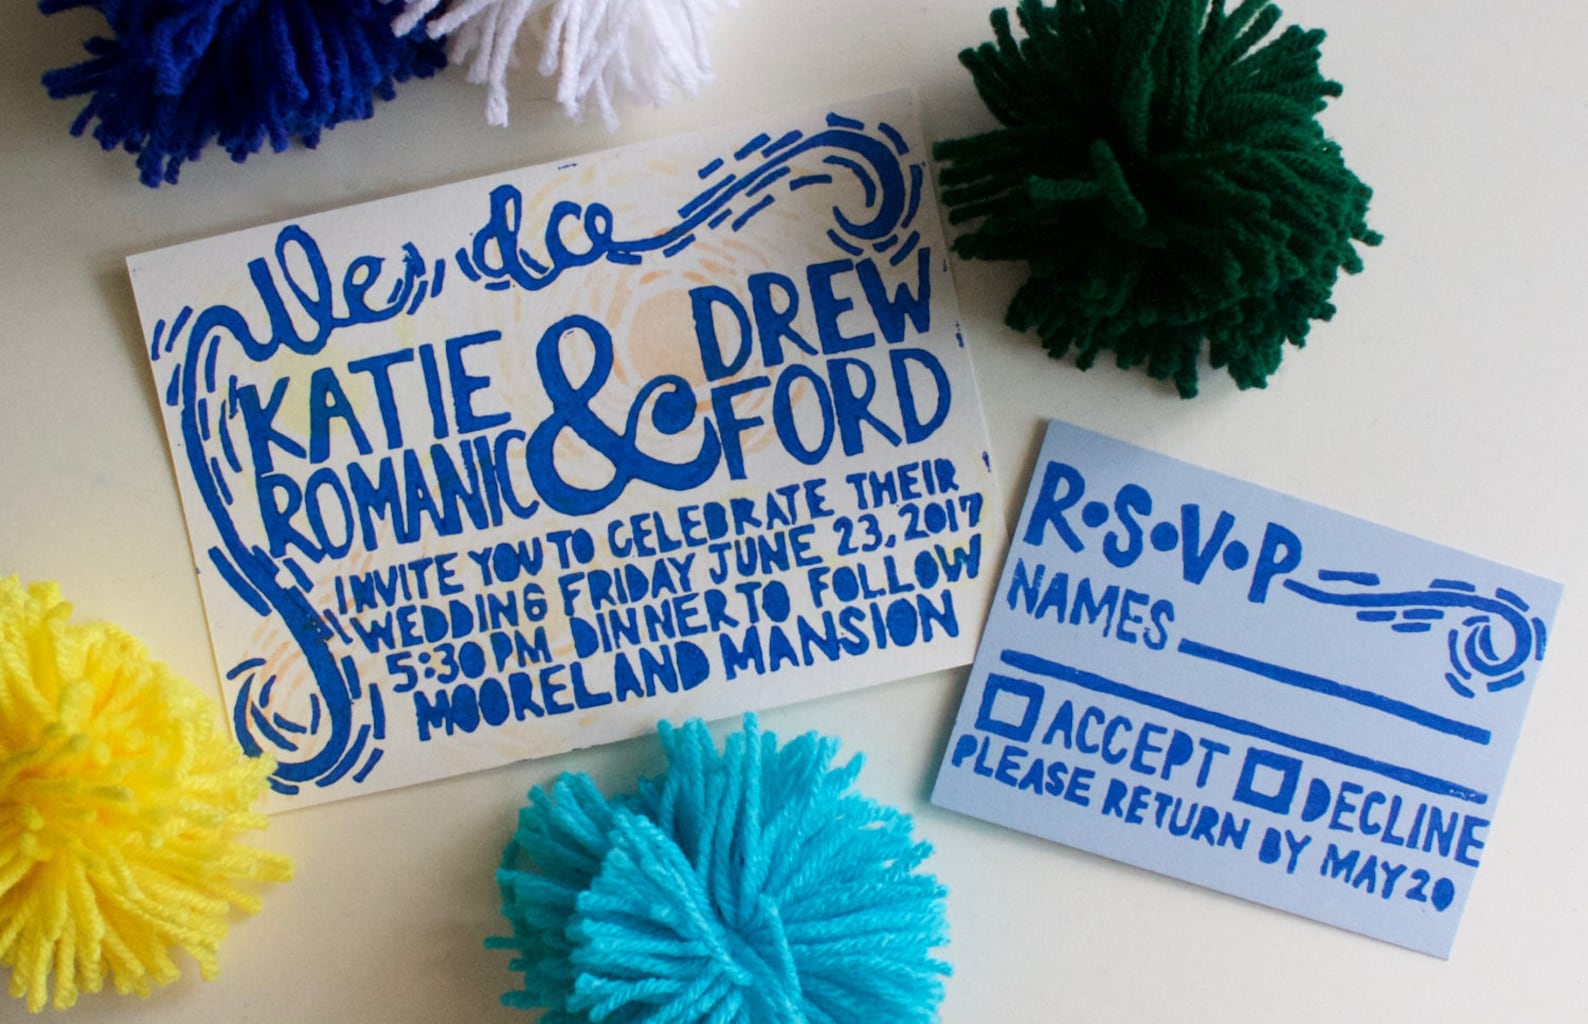 We do
KATIE
ROMANIC
&
DREW
FORD
INVITE YOU TO CELEBRATE THEIR
WEDDING FRIDAY JUNE 23, 2017
5:30 PM DINNER TO FOLLOW
MOORELAND MANSION
R•S•V•P
NAMES
ACCEPT DECLINE
PLEASE RETURN BY MAY 20